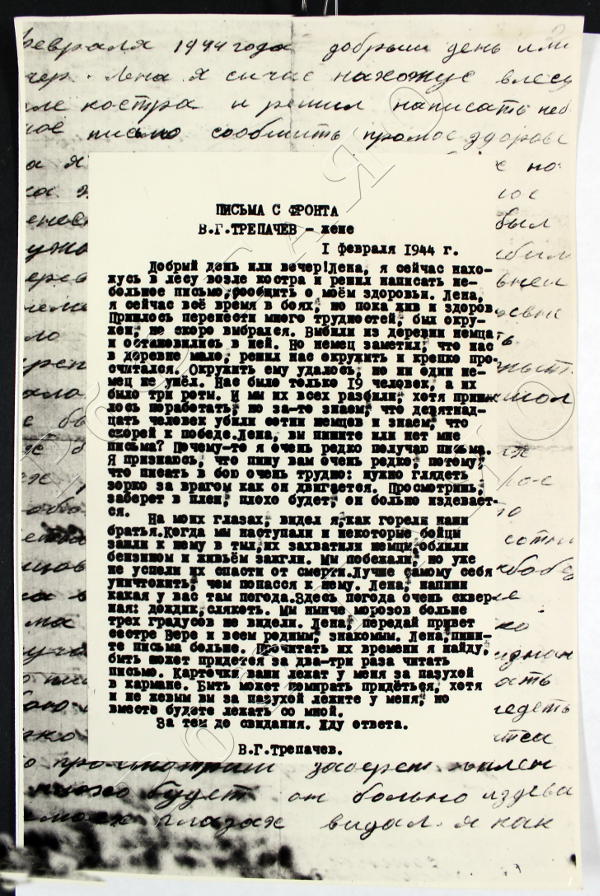 февраля 1944 года добрый день или
Лена я сичас нахожус в лесу
костра и решил написать неб
письмо сообщить про мое здоровье
ПИСЬМА С ФРОНТА
В.Г.ТРЕПАЧЕВ - жене
I февраля 1944 г.
Добрый день или вечер!Лена, я сейчас нахо-
жусь в лесу возле костра и решил написать не-
большое письмо,сообщить о моём здоровьи. Лена,
я сейчас всё время в боях, но пока жив и здоров.
Пришлось перенести много трудностей, был окру-
жен, не скоро выбрался. Выбили из деревни немца
и остановились в ней. Но немец заметил, что нас
в деревне мало, решил нас окружить и крепко про-
считался. Окружить ему удалось, но ни один не-
мец не ушёл. Нас было только 19 человек, а их
было три роты. И мы их всех разбили, хотя приш
лось поработать, но за-то знаем, что девятнад-
цать человек убили сотни немцев и знаем, что
скорей к победе.Лена, вы пишите или нет мне
письма? Почему-то я очень редко получаю письма.
Я признаюсь, что пишу вам очень редко, потому,
что писать в бою очень трудно: нужно глядеть
зорко за врагом как он двигается. Просмотришь,
заберет в плен, плохо будет, он больно издевает-
ся.
На моих глазах, видел я,как горели наши
братья.Когда мы наступали и некоторые бойцы
зашли к нему в тыл,их захватили немцы,облили
бензином и живьём зажгли. Мы побежали, но уже
не успели их спасти от смерти.Лучше самому себя
уничтожить, чем попасся к нему. Лена, напиши
какая у вас там погода.Здесь погода очень сквер-
ная: дождик,слякоть. Мы нынче морозов больше
трех градусов не видели. Лена, передай привет
сестре Вере и всем родным, знакомым. Лена,пиши-
те письма больше. Прочитать их времени я найду,
быть может придется за два-три раза читать
письмо. Карточки ваши лежат у меня за пазухой
в кармане. Быть может помирать придёться, хотя
и не живыи вы за пазухой лежите у меня, но
вместе будете лежать со мной.
За тем до свидания. Жду ответа.
В.Г.Трепачев.
просмотриш заберет плен
будет он больно издева
глазах видал я как